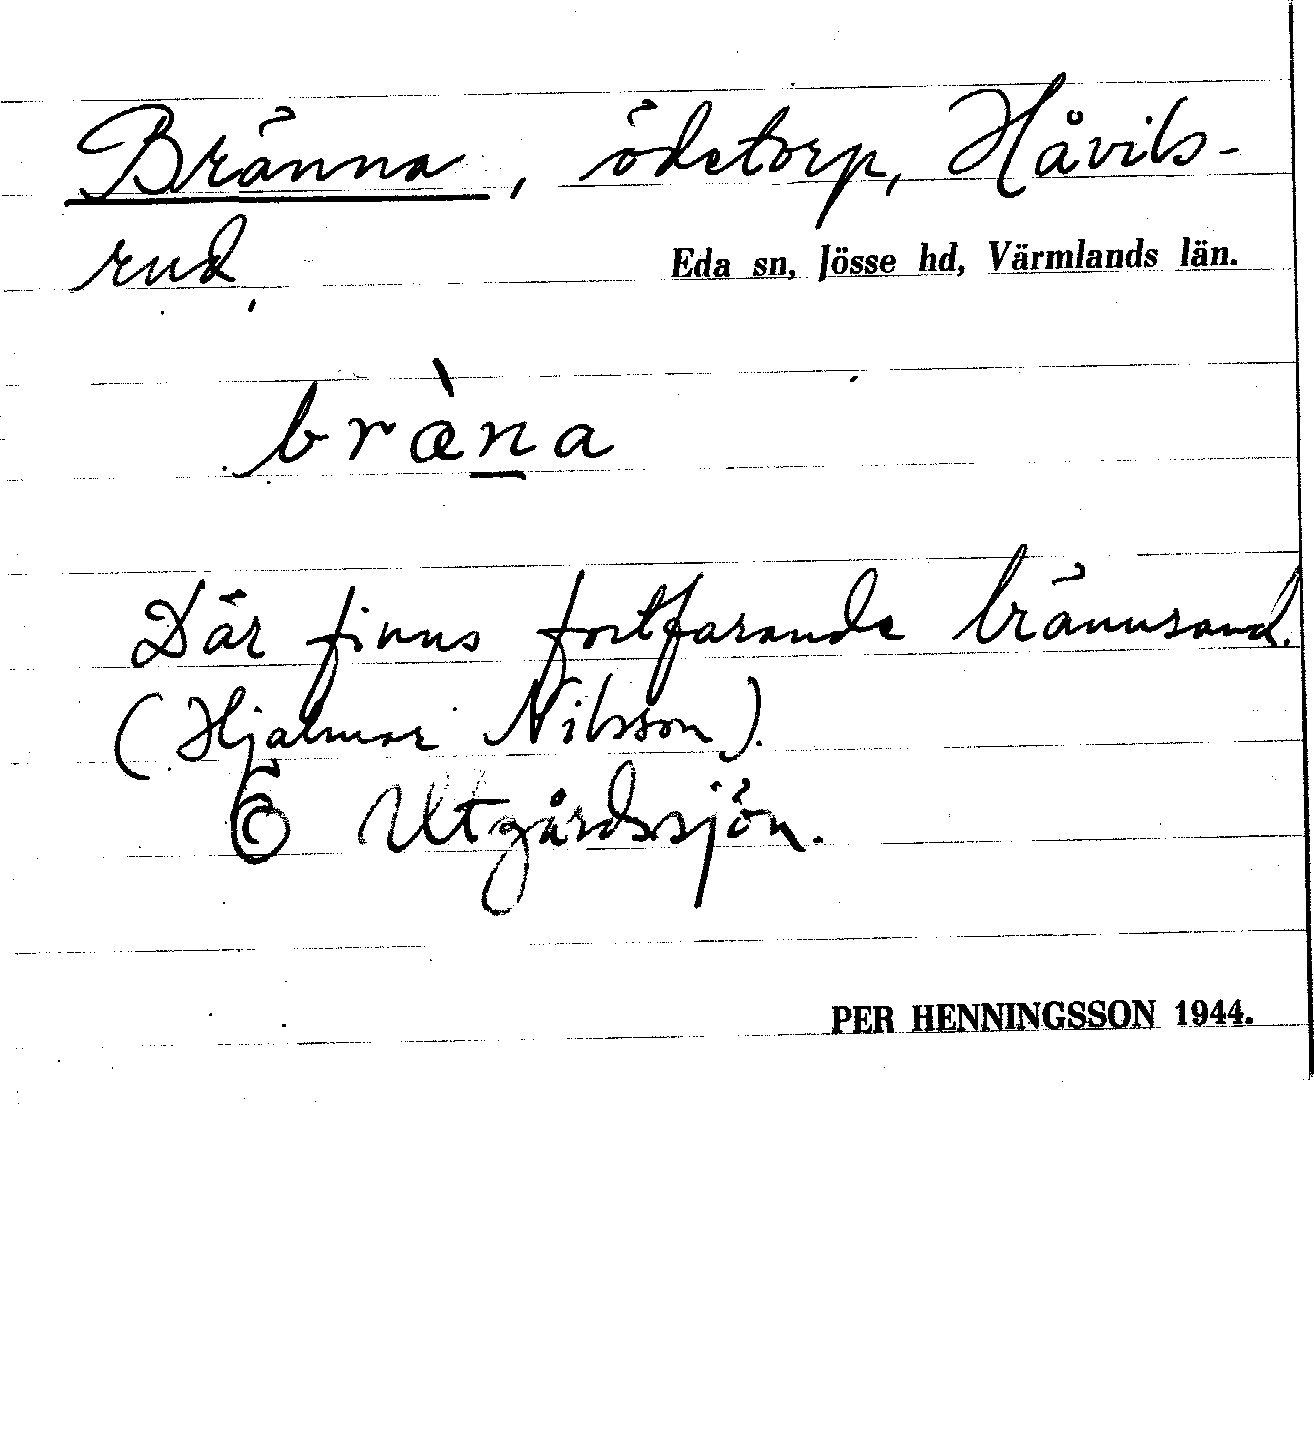 Bränna, ödetorp, Håvils-
rud,
Eda sn, Jösse hd, Värmlands län.
bræ̀n̲a
Där finns fortfarande brännsand.
(Hjalmar Nilsson).
Ö Utgårdssjön.
PER HENNINGSSON 1944.